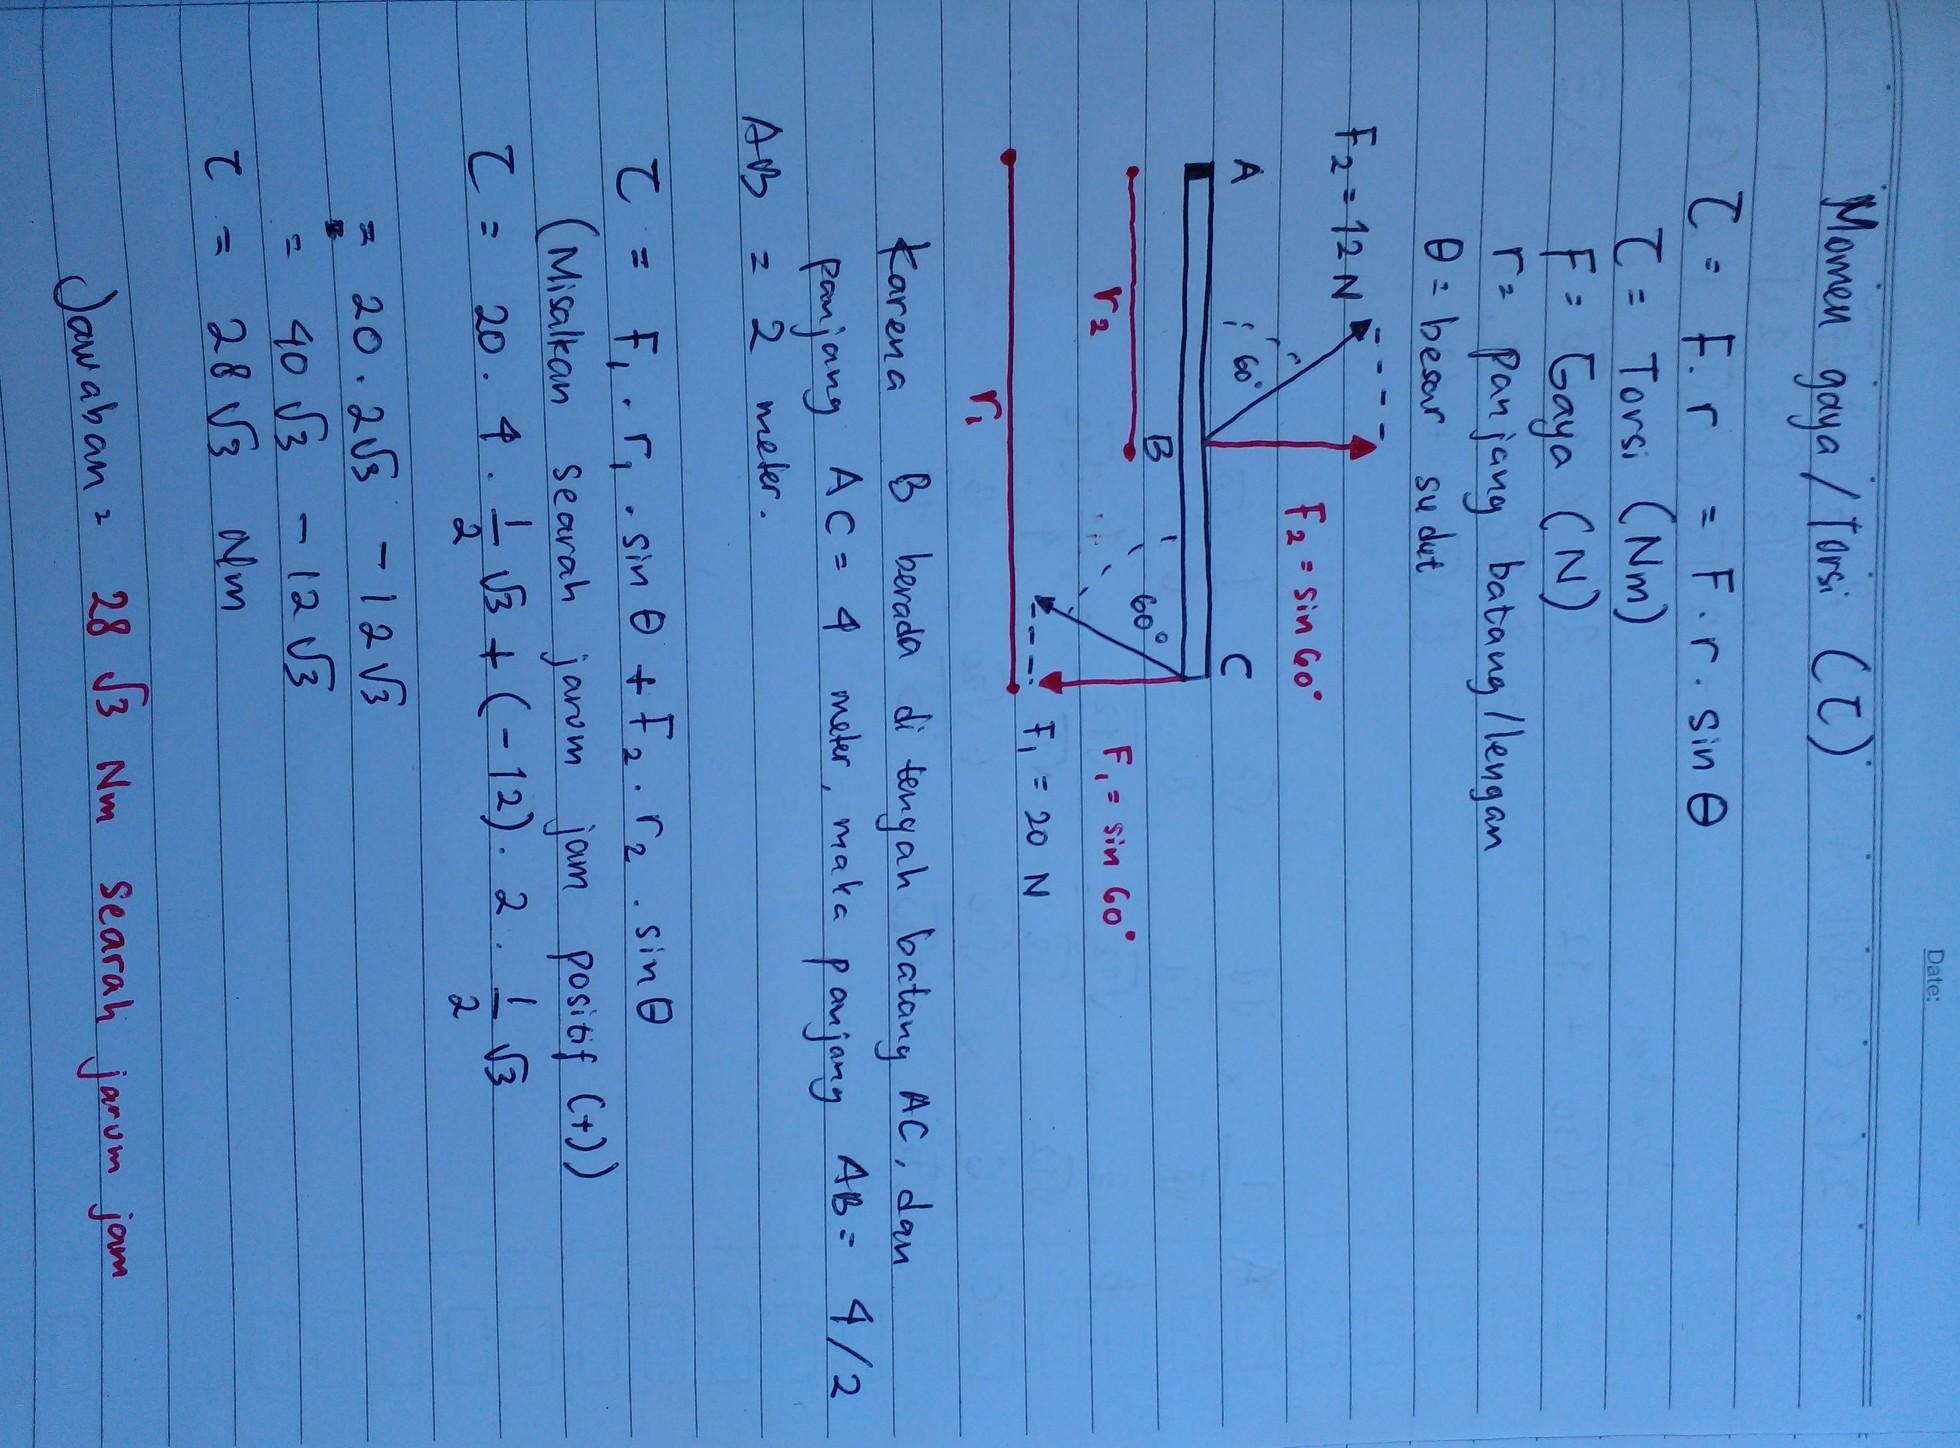 Date:
Momen gaya/Torsi (τ)
τ = F. r = F. r. sin θ
τ = Torsi (Nm)
F = Gaya (N)
r = Panjang batang/lengan
θ = besar sudut
F2 = 12 N
F2 = sin 60°
60°
A
B
C
r2
60°
F1 = sin 60°
F1 = 20 N
r1
Karena B berada di tengah batang AC, dan
panjang AC = 4 meter, maka panjang AB = 4/2
AB = 2 meter.
τ = F1 . r1 . sin θ + F2 . r2 . sin θ
(Misalkan searah jarum jam positif (+))
τ = 20. 4 . 1/2 √3 + (-12). 2. 1/2 √3
= 20. 2√3 - 12√3
= 40 √3 - 12√3
τ = 28 √3 Nm
Jawaban = 28 √3 Nm searah jarum jam